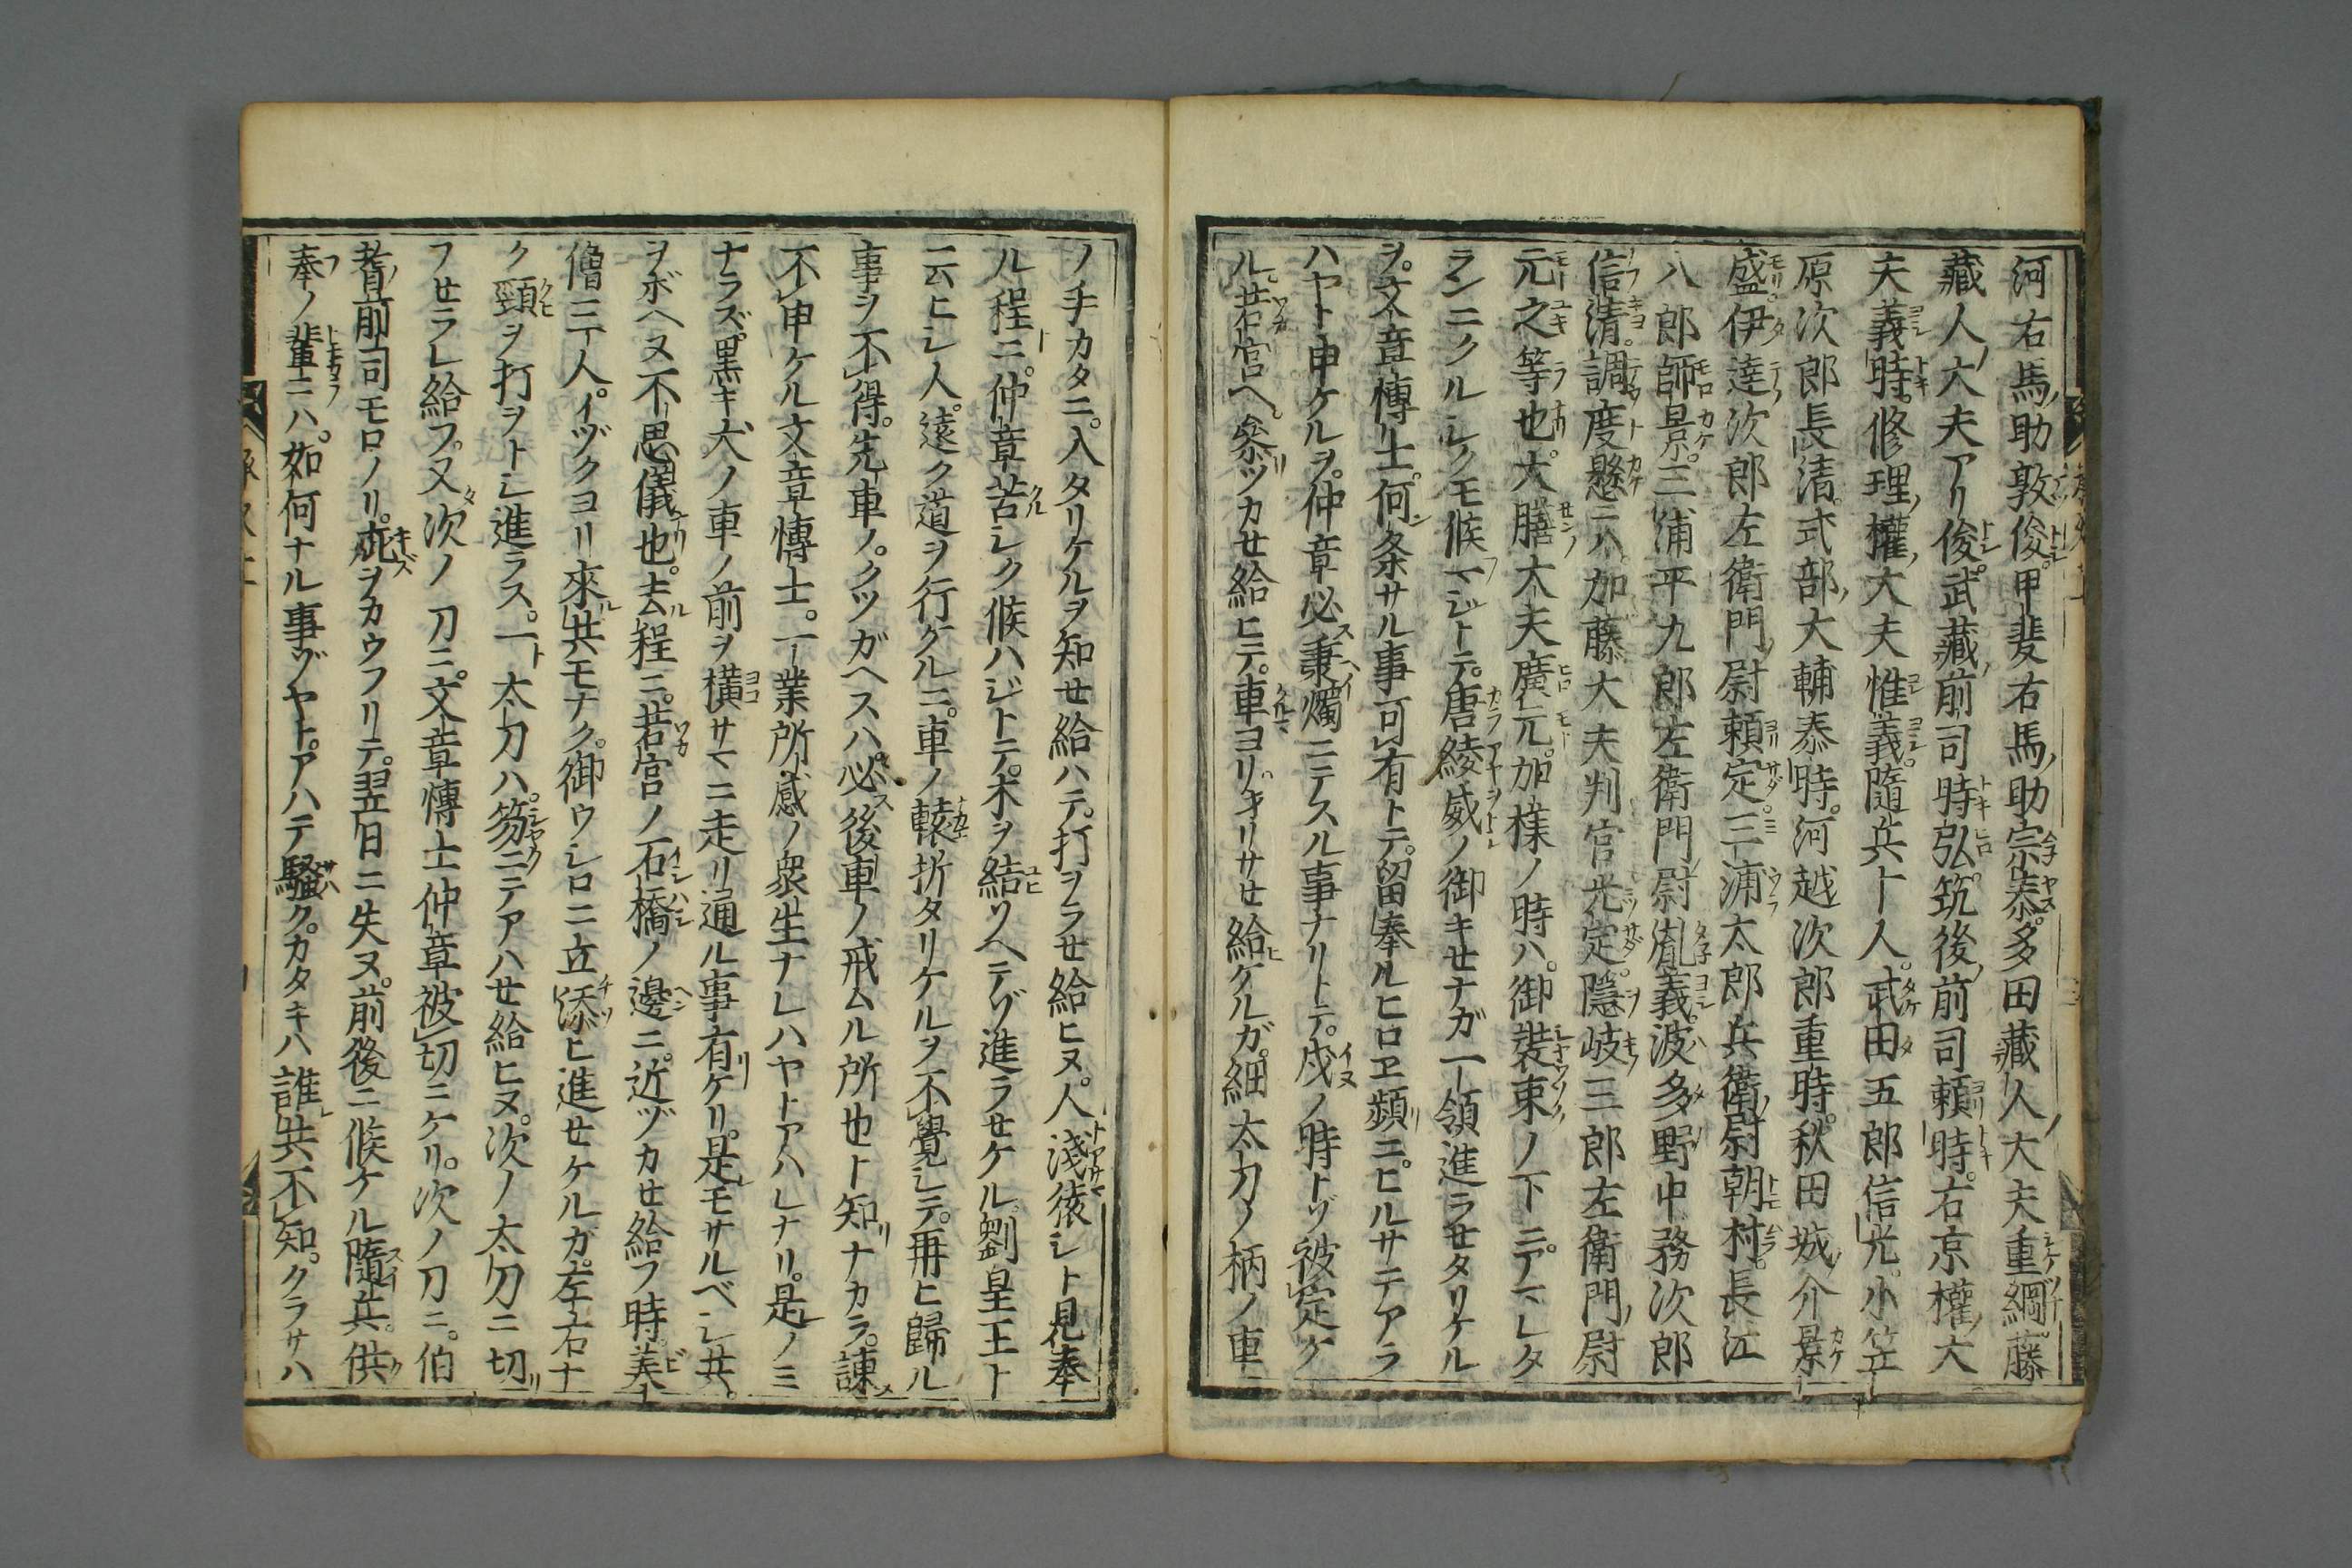 河右馬ノ助敦俊。甲斐右馬ノ助宗泰。多田藏人大夫重綱。藤
藏人ノ大夫アリ俊。武藏ノ前司時弘。筑後ノ前司頼時。右京權ノ大
夫義時。修理ノ權ノ大夫惟義。隨兵十人。武田五郎信光。小笠
原次郎長清。式部ノ大輔泰時。河越次郎重時。秋田城ノ介景
盛。伊達次郎左衛門ノ尉頼定。三浦太郎兵衛ノ尉朝村。長江
八郎師景。三浦平九郎左衛門ノ尉胤義。波多野中務次郎
信清。調度懸ニハ。加藤大夫判官光定。隠岐三郎左衛門ノ尉
元之等也。大膳大夫廣元。加樣ノ時ハ。御裝束ノ下ニ。アマレタ
ランニクルシクモ候マジトテ。唐綾威ノ御キセナガ一領進ラセタリケル
ヲ。文章博士。何条サル事可有トテ。留奉ルヒロヱ蘋ニ。ヒルサテアラ
ハヤト申ケルヲ。仲章必秉燭ニテスル事ナリトテ。戌ノ時トゾ被定ケ
ル。若宮ヘ。參ツカせ給ヒテ。車ヨリ。キリサせ給ケルガ。細太刀ノ柄ノ車
ノ手カタニ。入タリケルヲ知せ給ハテ。打ヲラせ給ヒヌ。人淺猿シト見奉
ル程ニ。仲章苦シク候ハジトテ。木ヲ結ソヘテゾ進ラせケル。劉皇王ト
ニ云ヒシ人。遠ク道ヲ行グルニ。車ノ轅折タリケルヲ不覺シテ。再ヒ歸ル
事ヲ不得。先車ノ。クツガヘスハ。必後車ノ戒ムル所也ト知ナカラ。諫
不申ケル文章博士。一業所感ノ衆生ナレハヤトアハレナリ。是ノミ
ナラズ。黒キ犬ノ車ノ前ヲ橫サマニ走リ通ル事有ケリ。是モサルベシ共。
ヲボヘヌ不思儀也。去程ニ。若宮ノ石橋ノ邊ニ。近ヅカせ給フ時。美
僧三人。イヅクヨリ來共モナク。御ウシロニ立添ヒ進せケルガ。左右ナ
ク頸ヲ打ヲトシ進ラス。一太刀ハ。笏ニテアハせ給ヒヌ。次ノ太刀ニ切
フせラレ給フ。又次ノ刀ニ。文章博士仲章被切ニケリ。次ノ刀ニ。伯
耆ノ前司モロノリ。疵ヲカウフリテ。翌日ニ失ヌ。前後ニ候ケル隨兵。供
奉ノ輩ニハ。如何ナル事ヅヤト。アハテ騷ク。カタキハ誰共不知。クラサハ